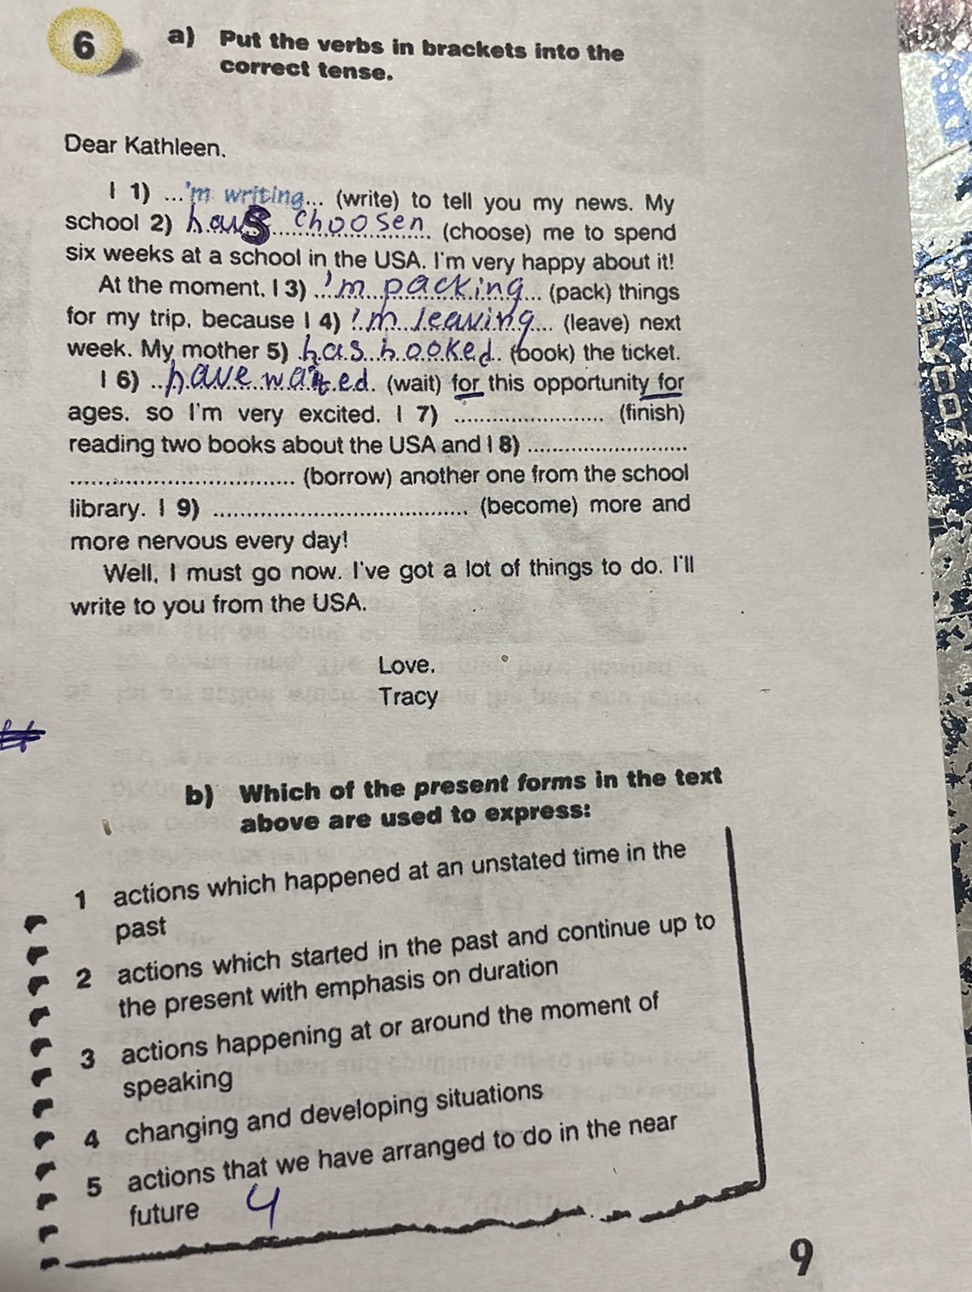 6 a) Put the verbs in brackets into the
correct tense.
Dear Kathleen,
I 1) ...'m writing... (write) to tell you my news. My
school 2) has choosen (choose) me to spend
six weeks at a school in the USA. I'm very happy about it!
At the moment, I 3) ...'m packing... (pack) things
for my trip, because I 4) 'm leaving... (leave) next
week. My mother 5) has booked. (book) the ticket.
I 6) ..have waited. (wait) for this opportunity for
ages, so I'm very excited. I 7) ...................... (finish)
reading two books about the USA and I 8) ........................
................................. (borrow) another one from the school
library. I 9) ...................................... (become) more and
more nervous every day!
Well, I must go now. I've got a lot of things to do. I'll
write to you from the USA.
Love,
Tracy
b) Which of the present forms in the text
above are used to express:
1 actions which happened at an unstated time in the
past
2 actions which started in the past and continue up to
the present with emphasis on duration
3 actions happening at or around the moment of
speaking
4 changing and developing situations
5 actions that we have arranged to do in the near
future 4
9